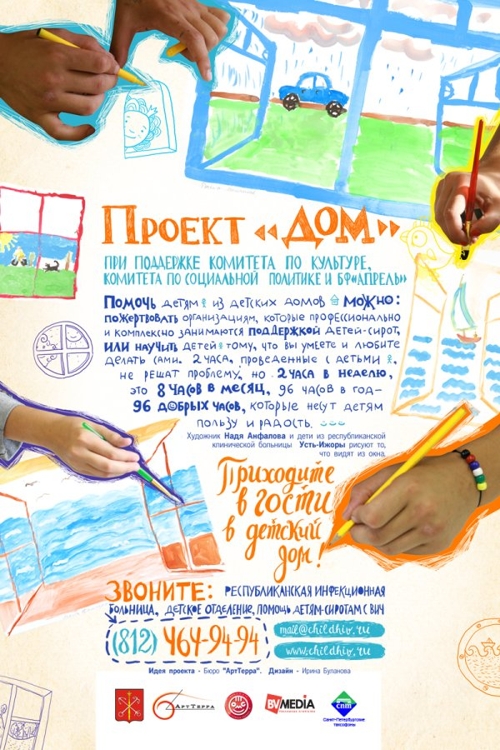 Проект «ДОМ»
ПРИ ПОДДЕРЖКЕ КОМИТЕТА ПО КУЛЬТУРЕ,
КОМИТЕТА ПО СОЦИАЛЬНОЙ ПОЛИТИКЕ И БФ«АПРЕЛЬ»
Помочь детям из детских домов можно:
пожертвовать организациям, которые профессионально
и комплексно занимаются поддержкой детей-сирот,
или научить детей тому, что вы умеете и любите
делать сами. 2 часа, проведенные с детьми,
не решат проблему, но 2 часа в неделю,
это 8 часов в месяц, 96 часов в год-
96 добрых часов, которые несут детям
пользу и радость.
Художник Надя Анфалова и дети из республиканской
клинической больницы Усть-Ижоры рисуют то,
что видят из окна.
Приходите
в гости
в детский
дом!
ЗВОНИТЕ: РЕСПУБЛИКАНСКАЯ ИНФЕКЦИОННАЯ
БОЛЬНИЦА, ДЕТСКОЕ ОТДЕЛЕНИЕ, ПОМОЩЬ ДЕТЯМ-СИРОТАМ С ВИЧ
(812) 464-94-94
mail@childhiv.ru
www.childhiv.ru
Идея проекта - Бюро "АртТерра". Дизайн - Ирина Буланова
АртТерра
BVMEDIA
спт
Санкт-Петербургские
таксофоны